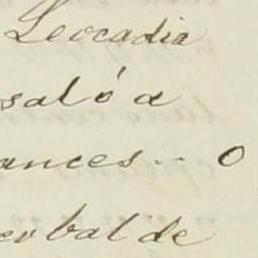 Leocadia
saló a
ances -- O
erbal de